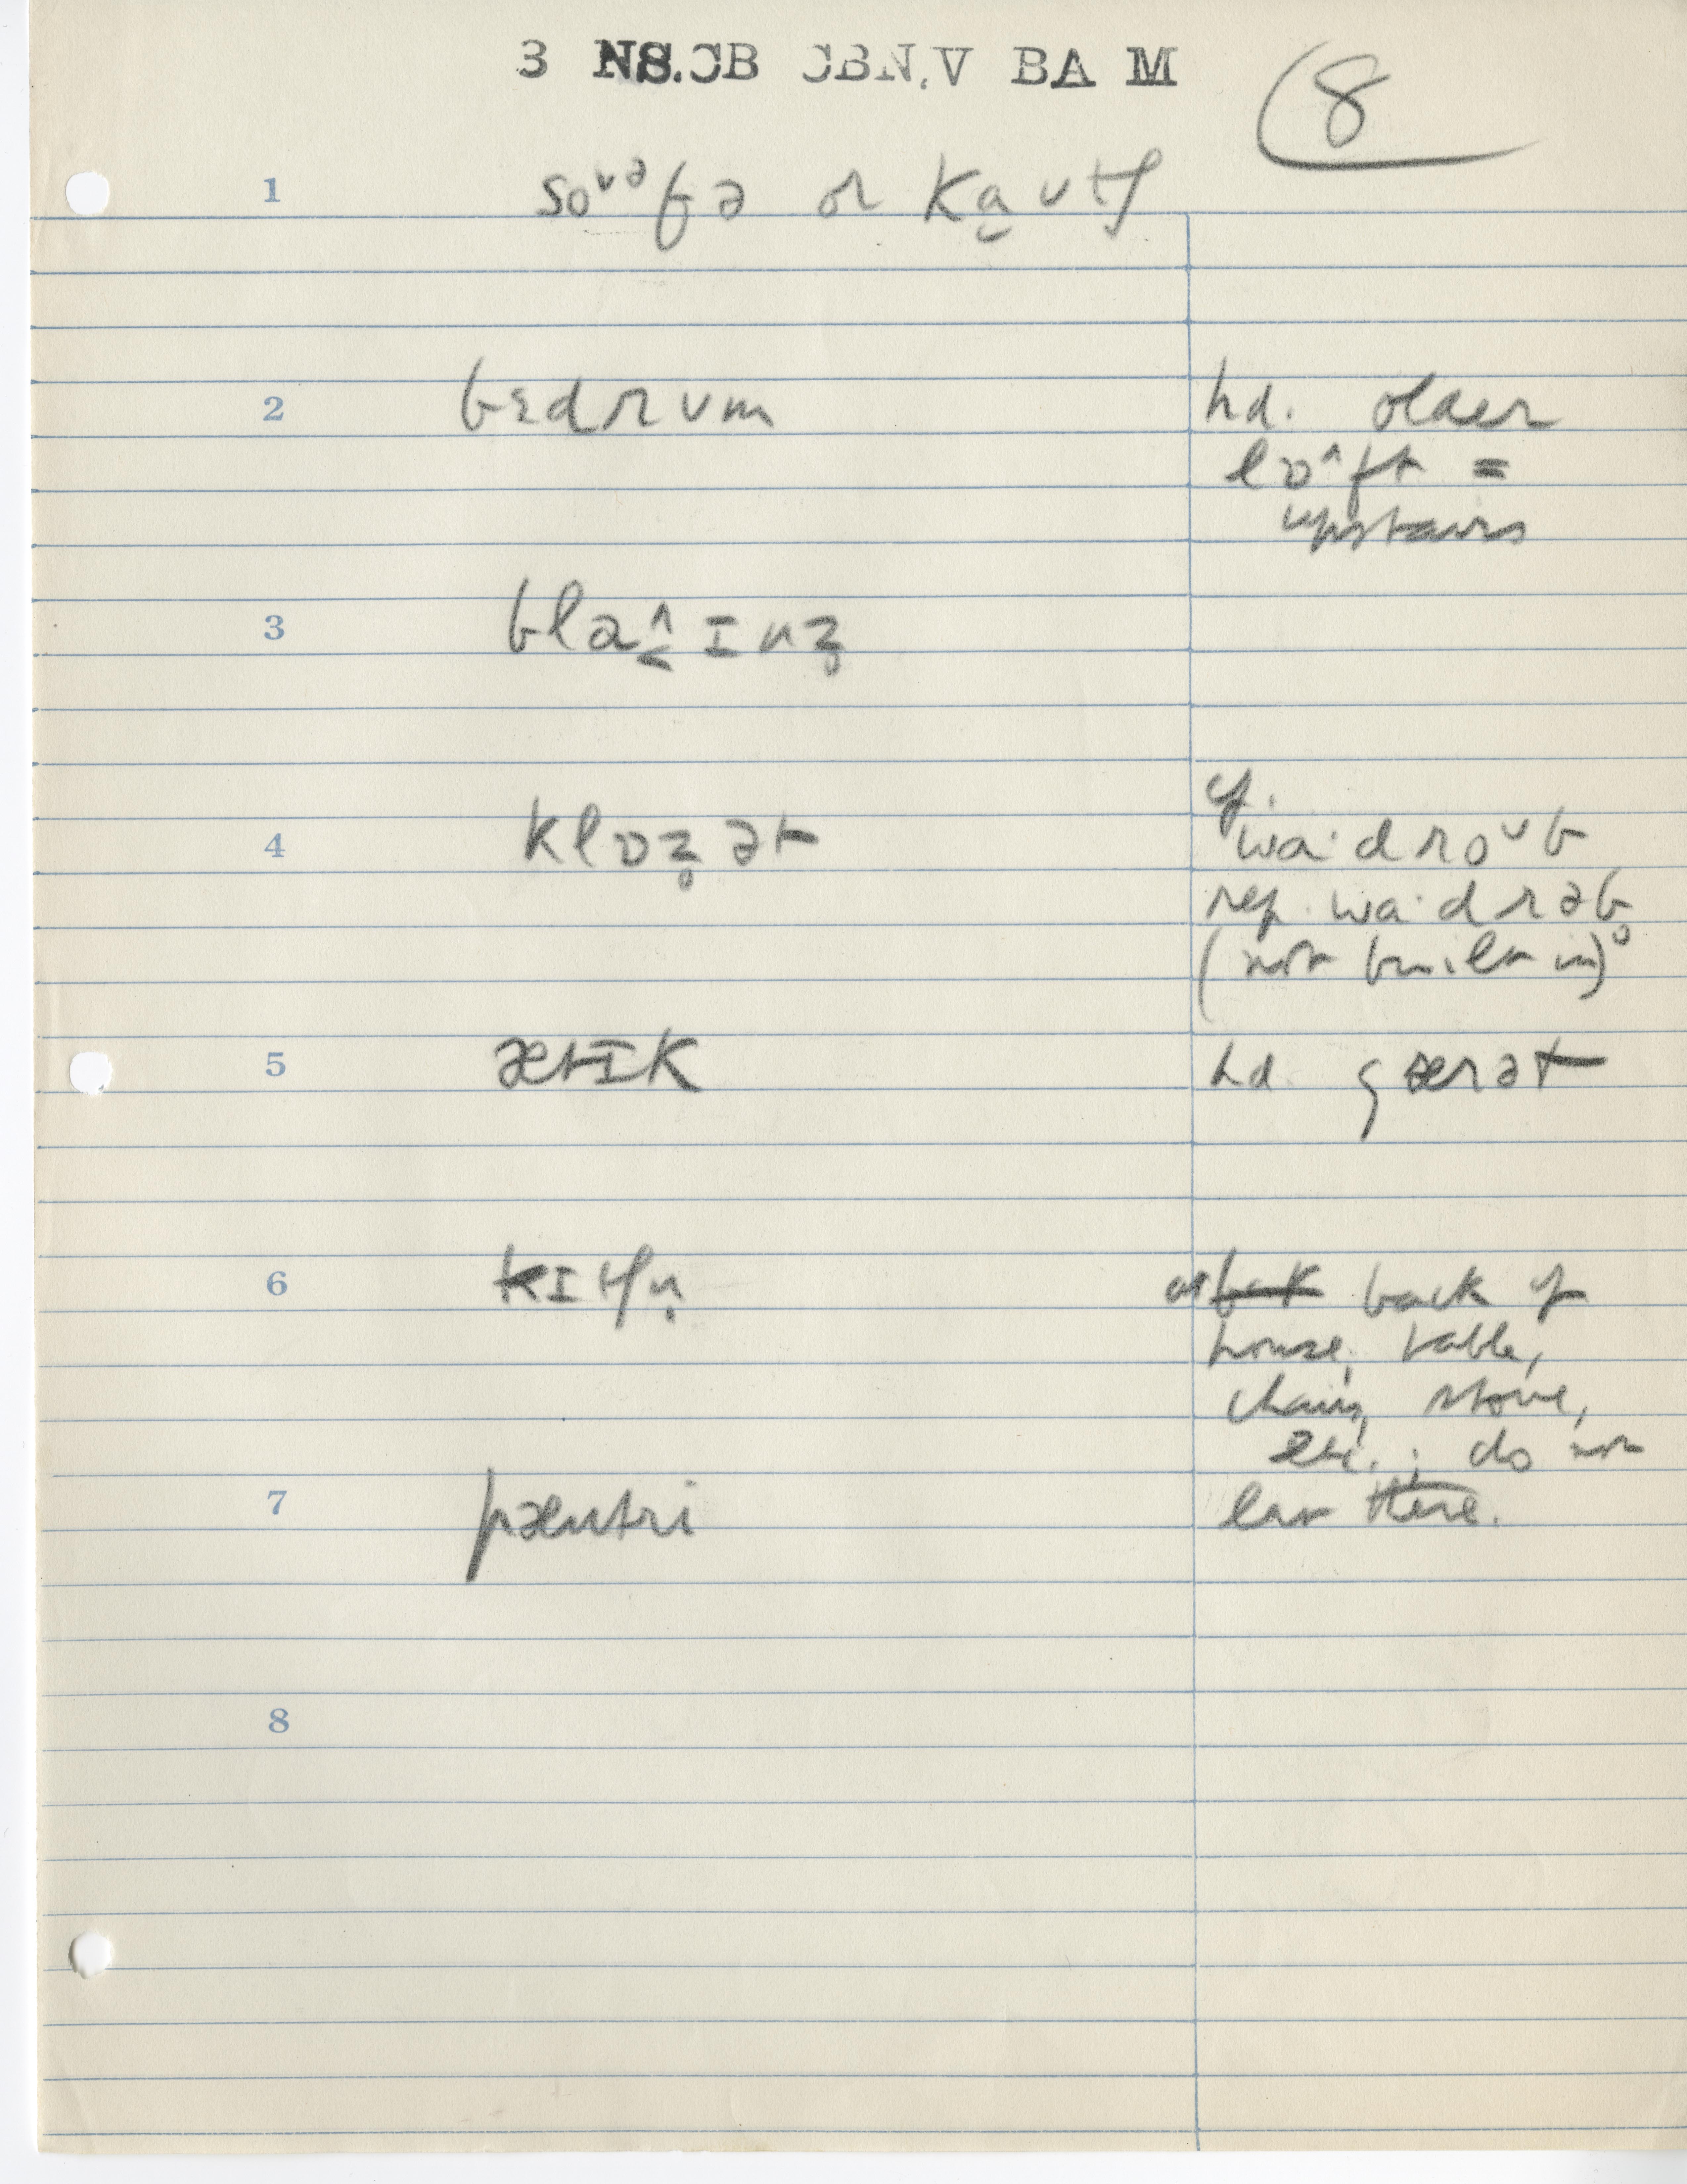 3 NS.CB CBN.V BA M
8
1 soᶷᵊfə or ka̯ʊtʃ
2 bɛdrʊm hd. older
lɒ^ft =
upstairs
3 bla^˂ɪnz̥
4 klɒz̥ət cf.
wa·droᶷb
rep. wa·drəb̥
(not built in)
5 ætɪk hd gærət
6 kɪtʃn̩ at back of
house, table,
chairs, stove,
etc.; do not
7 pæntri eat there.
8